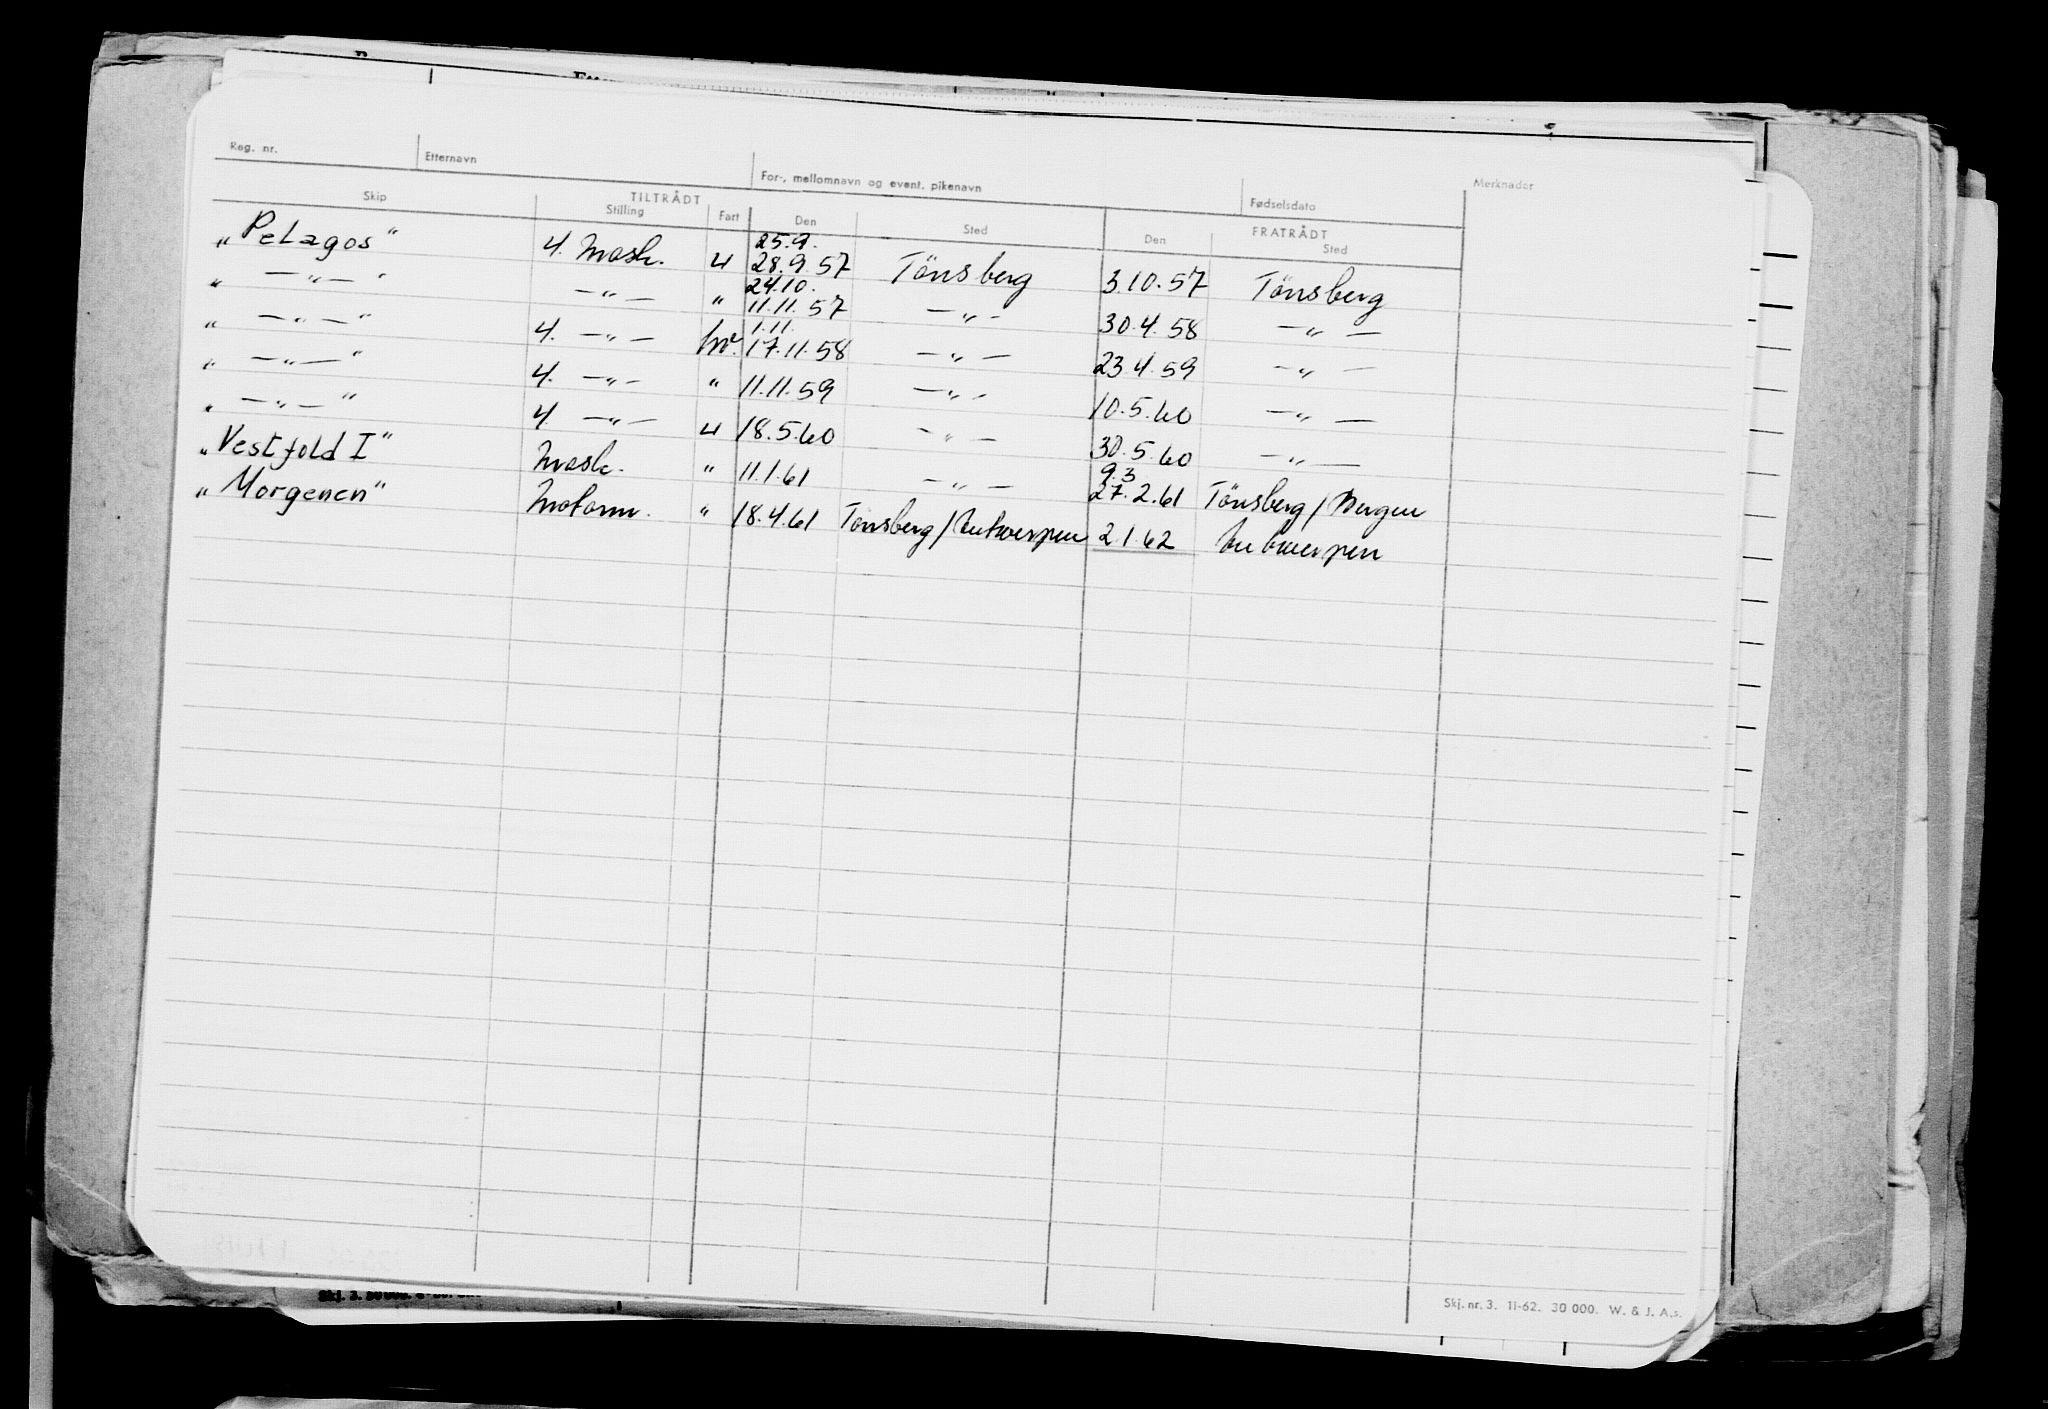 Reg. nr. Etternavn For-, mellomnavn og event. pikenavn Fødselsdato Merknader
TILTRÅDT FRATRÅDT
Skip Stilling Fart Den Sted Den Sted
25.9.
„Pelagos" 4. mask. u 28.9.57 Tönsberg 3.10.57 Tönsberg
24.10.
„ —„— " —„— " 11.11.57 —„— 30.4.58 —„—
1.11.
„ —„— " 4. —„— hv. 17.11.58 —„— 23.4.59 —„—
„ —„— " 4. —„— " 11.11.59 —„— 10.5.60 —„—
„ —„— " 4. —„— u 18.5.60 —„— 30.5.60 —„—
9.3
„Vestfold I" mask. " 11.1.61 —„— 27.2.61 Tönsberg/Bergen
„Morgenen" motorm. " 18.4.61 Tönsberg/Antwerpen 2.1.62 Antwerpen
Skj. nr. 3. 11-62. 30 000. W. & J. A.s.